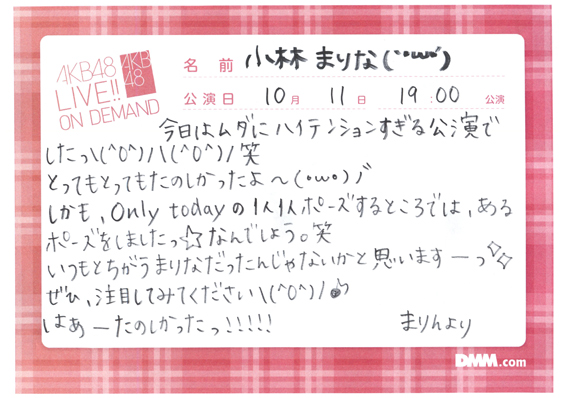 AKB48
LIVE!!
ON DEMAND
AKB
48
名前 小林 まりな(˙˙ω˙)
公演日 10月 11日 19:00 公演
今日はムダにハイテンションすぎる公演で
したっ\(^0^)/\(^0^)/笑
とってもとってもたのしかったよ〜(・ω・)ノ゛
しかも、Only todayの1人1人ポーズするところでは、ある
ポーズをしましたっ☆なんでしょう。笑
いつもとちがうまりなだったんじゃないかと思いますーっ✧✧
ぜひ、注目してみてください\(^0^)/👍
はぁーたのしかったっ!!!!!
まりんより
DMM.com